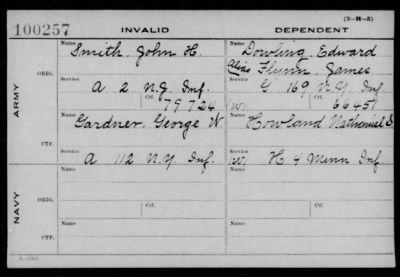 (3-H-3)
100257 INVALID DEPENDENT
Name Name
Smith, John H. Dowling, Edward
Alias Flynn, James
ARMY ORIG. Service Service
A 2 N.J. Inf. G 169 N.Y. Inf.
Ctf. Ctf.
79724 (W) 66451
Name Name
Gardner, George W. Howland Nathaniel S.
CTF. Service Service
A 112 N.Y. Inf. (W) H 4 Minn Inf.
NAVY ORIG. Name Name
Service Ctf. Service Ctf.
CTF. Name Name
Service Service